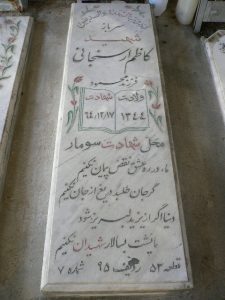 سرباز
شهید
کاظم ارسنجانی
فرزند محمود
ولادت شهادت
۱۳۴۴ ۶۴/۱۲/۱۷
محل شهادت سومار
ما در ره عشق نقض پیمان نکنیم
گر جان طلبد دریغ از جان نکنیم
دنیا اگر از یزید لبریز شود
ما پشت به سالار شهیدان نکنیم
قطعه ۵۳ ردیف ۹۵ شماره ۷